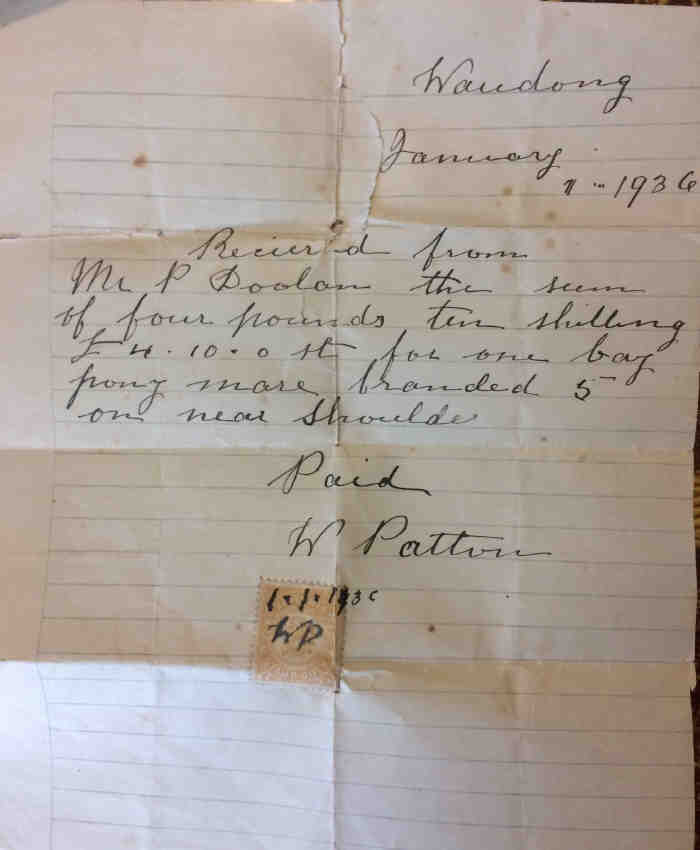 Wandong
January
1 - 1936
Recieved from
Mr P Doolan the sum
of four pounds ten shilling
£4.10.0 st for one bay
pony mare branded 5
on near shoulder
Paid
W Patton
1.1.1936
WP